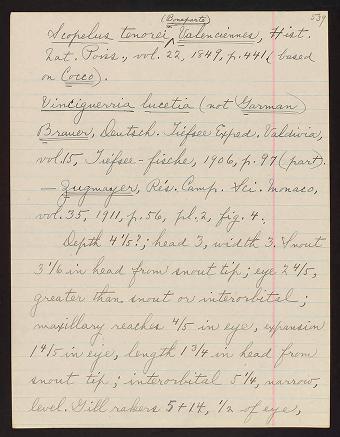 539
(Bonaparte)
Scopelus tenorei Valenciennes, Hist.
Nat. Poiss., vol. 22, 1849, p. 441 (based
on Cocco).
Vinciguerria lucetia (not Garman)
Brauer, Deutsch. Tiefsee Exped. Valdivia,
vol. 15, Tiefsee-fische, 1906, p. 97 (part).
— Zugmayer, Rés. Camp. Sci. Monaco,
vol. 35, 1911, p. 56, pl. 2, fig. 4.
Depth 4 1/5?; head 3, width 3. Snout
3 1/6 in head from snout tip; eye 2 4/5,
greater than snout or interorbital;
maxillary reaches 4/5 in eye, expansion
1 4/5 in eye, length 1 3/4 in head from
snout tip; interorbital 5 1/4, narrow,
level. Gill rakers 5+14, 1/2 of eye,